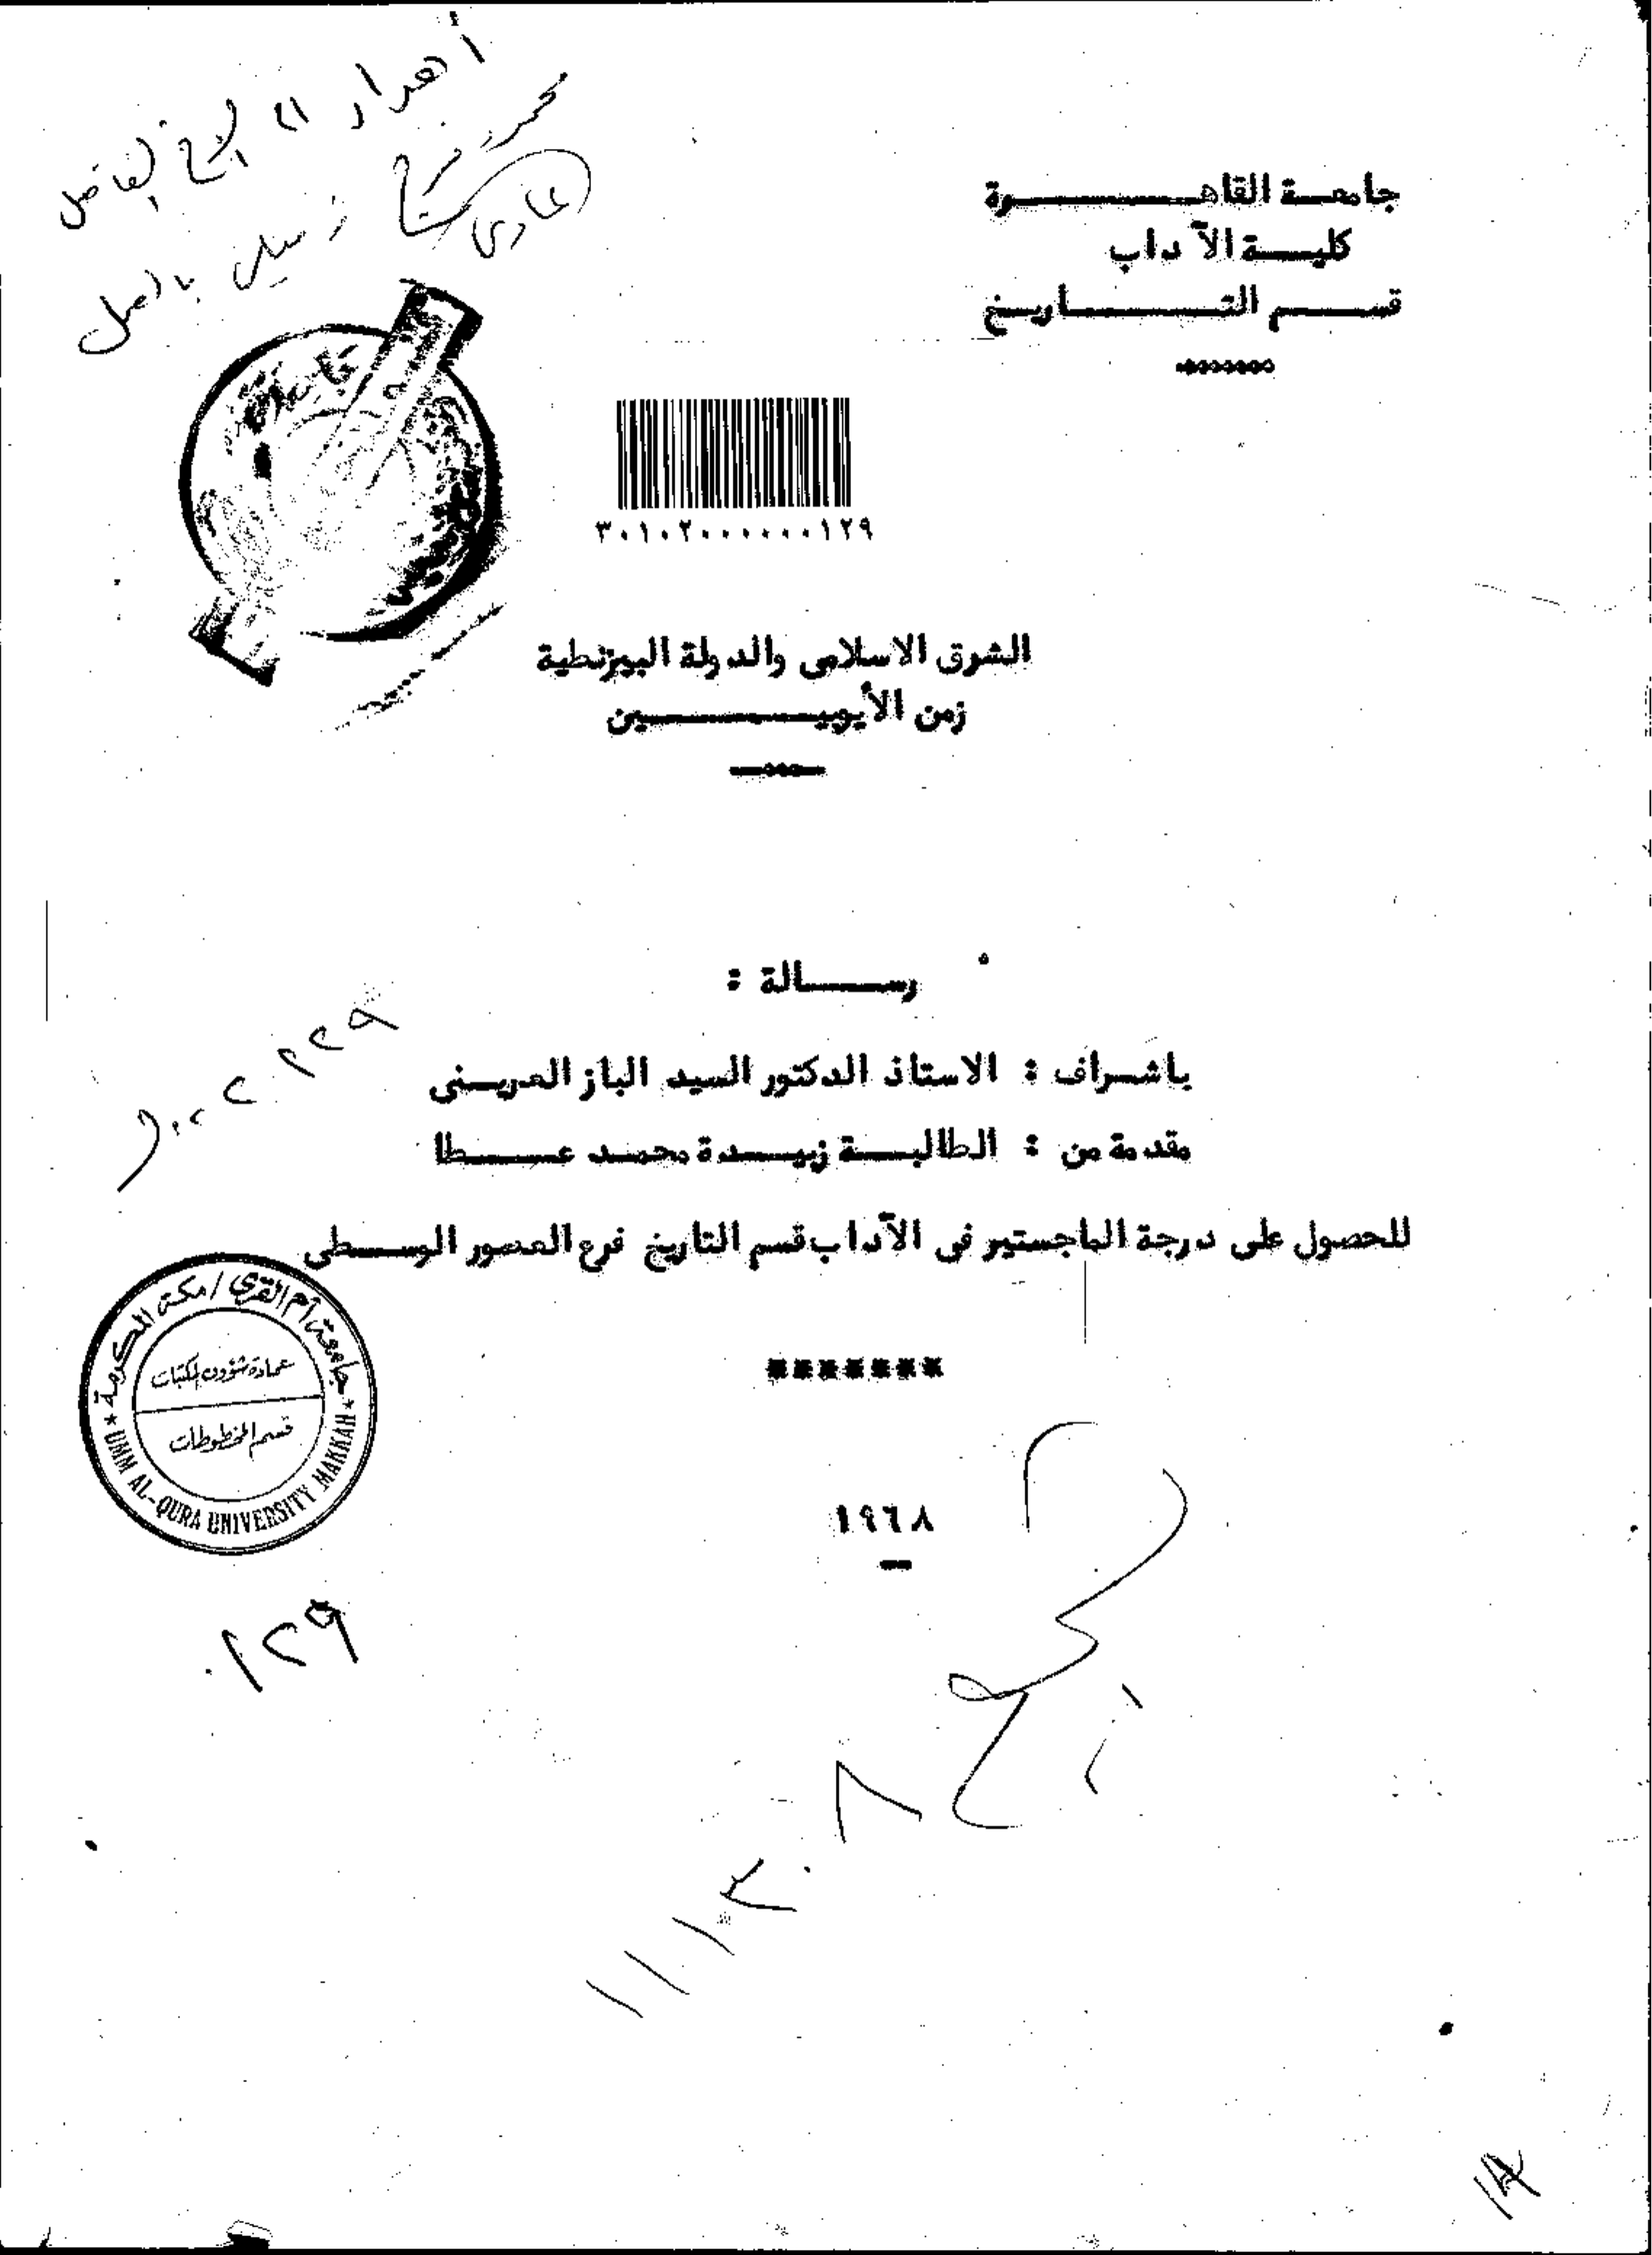 جامعة القاهرة
كلية الآداب
قسم التاريخ
أهداء الى الاخ الفاضل
محمد
زميلى بالعمل
٣٠١٠٢٠٠٠٠٠٠١٢٩
الشرق الاسلامى والدولة البيزنطية
زمن الأيوبيين
رسالة :
باشراف : الاستاذ الدكتور السيد الباز العرينى
مقدمة من : الطالبة زبيدة محمد عطا
للحصول على درجة الماجستير فى الآداب قسم التاريخ فرع العصور الوسطى
*******
جامعة أم القرى / مكة المكرمة
عمادة شؤون المكتبات
قسم المخطوطات
UMM AL-QURA UNIVERSITY MAKKAH
١٩٦٨
١٢٩